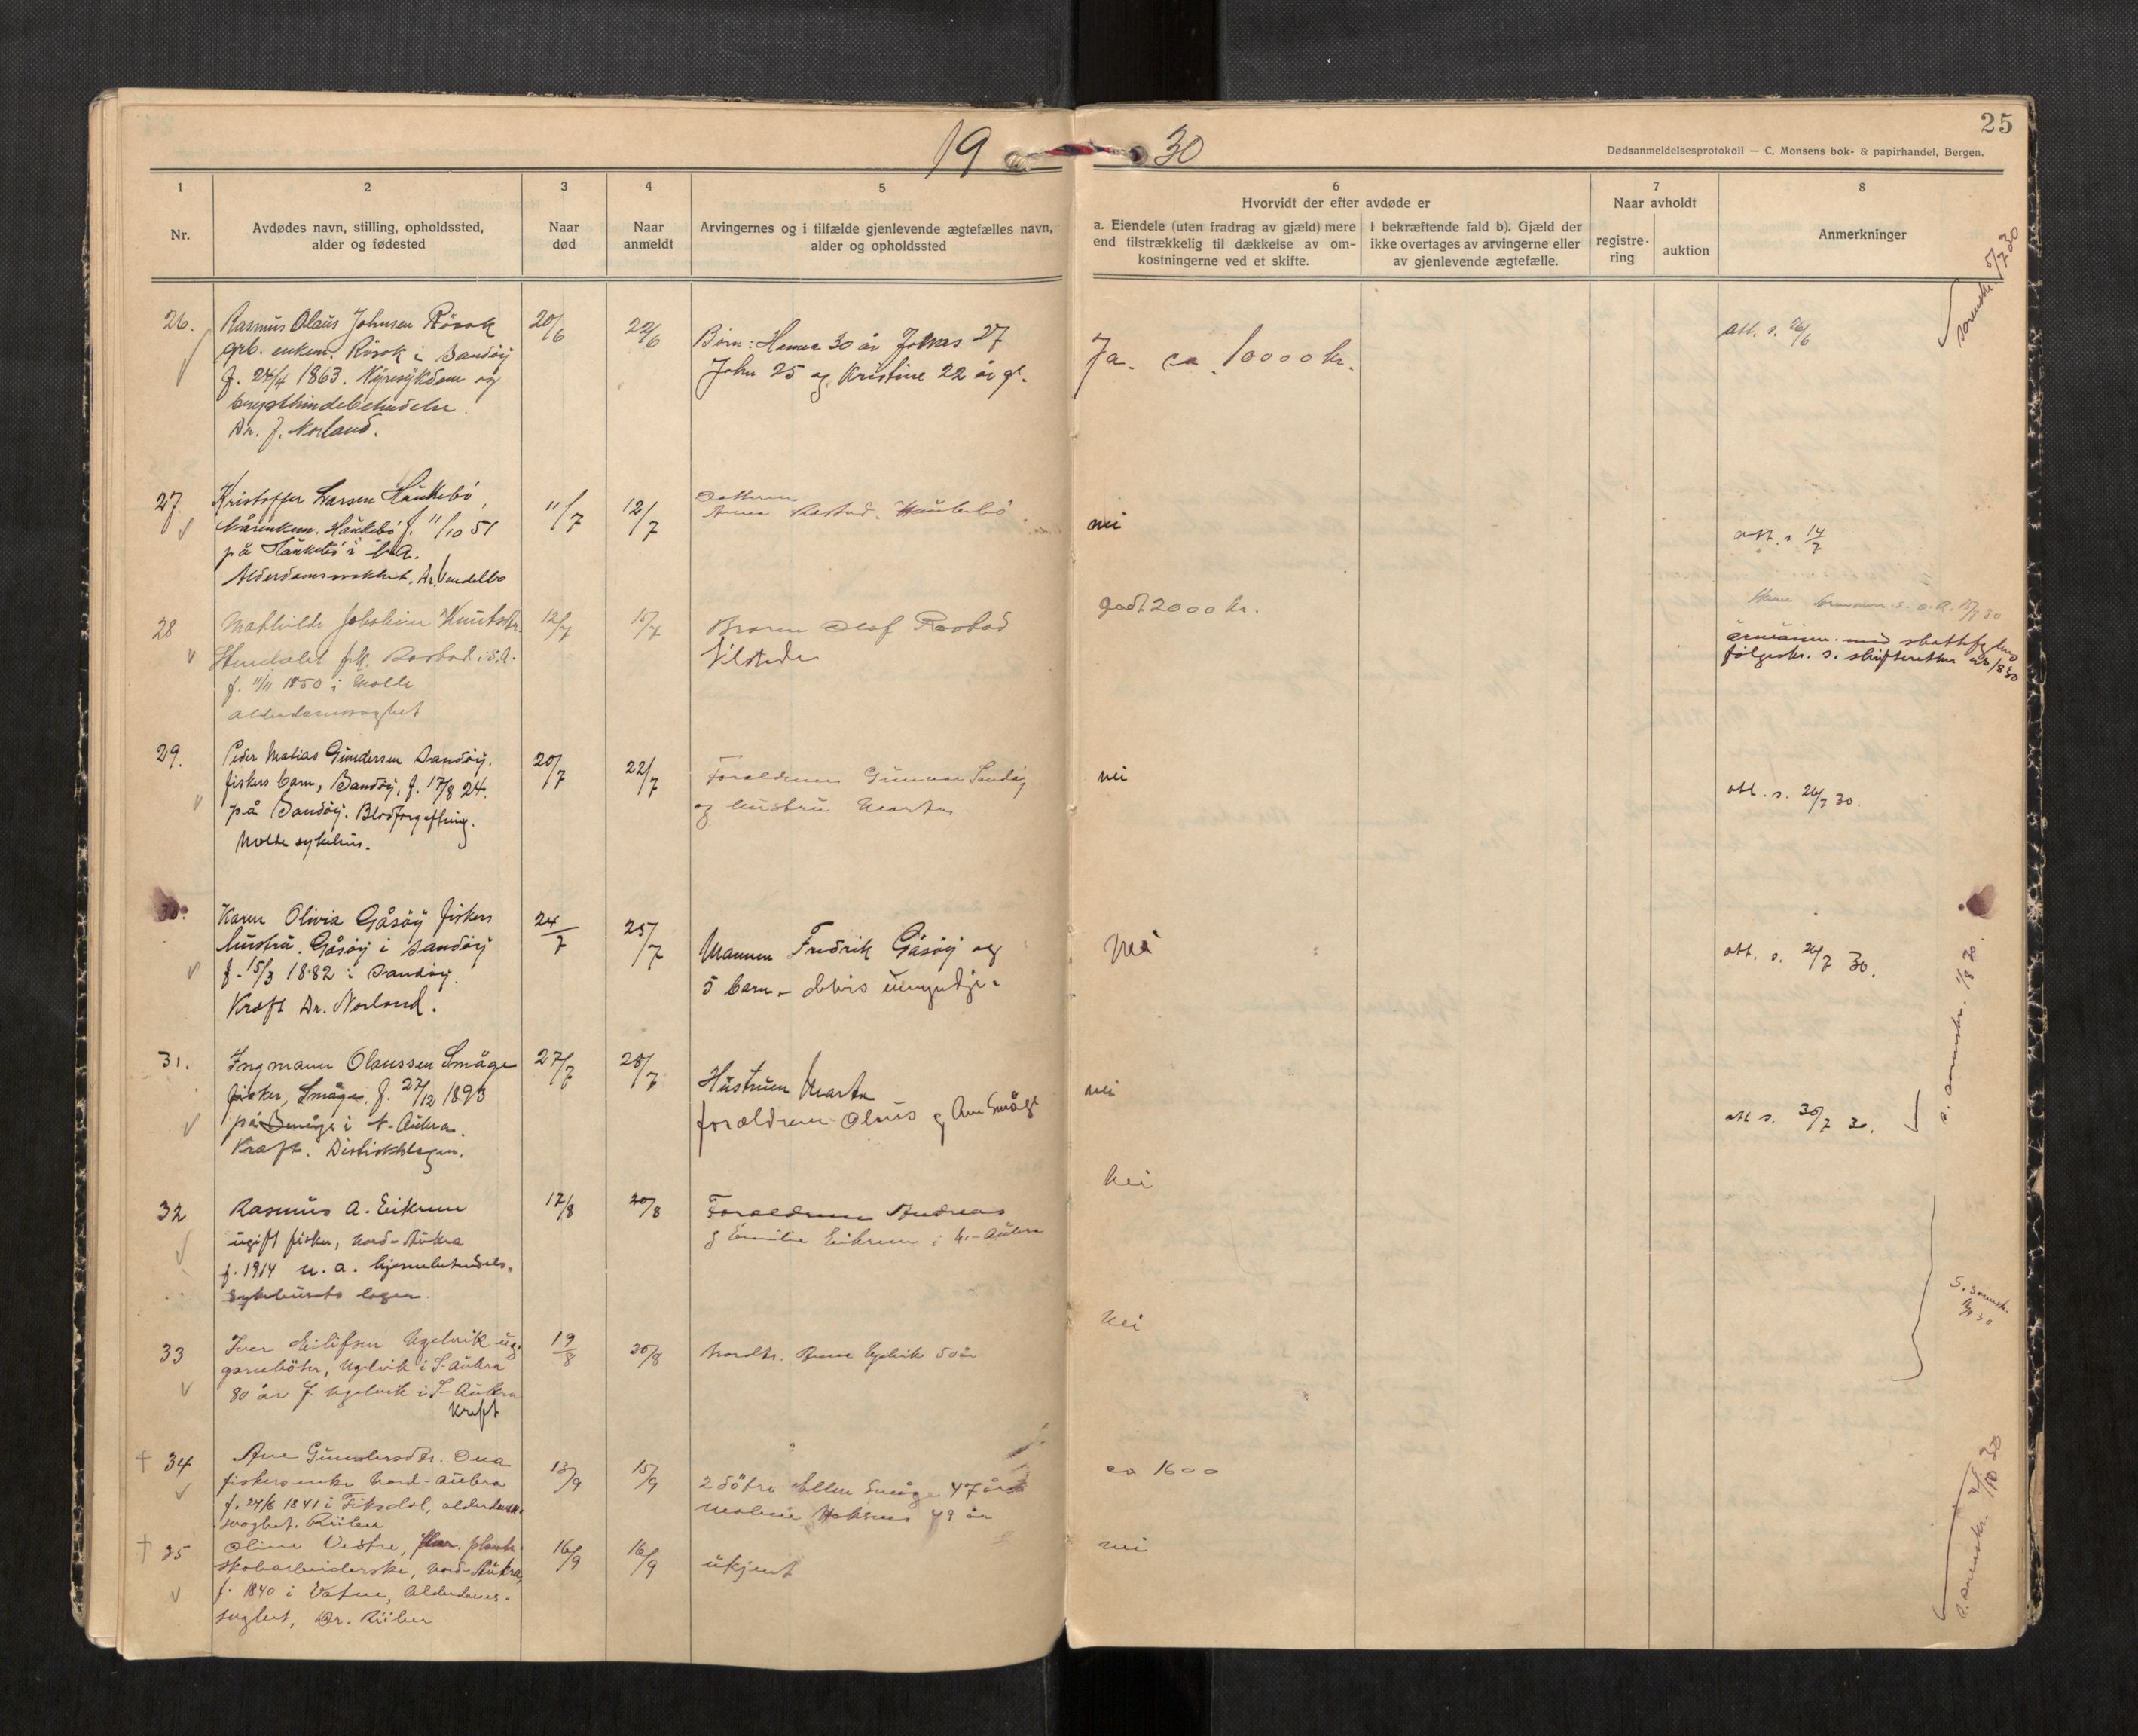 19 30
25
Dødsanmeldelsesprotokoll — C. Monsens bok- & papirhandel, Bergen.
1
Nr.
2
Avdødes navn, stilling, opholdssted,
alder og fødested
3
Naar
død
4
Naar
anmeldt
5
Arvingernes og i tilfælde gjenlevende ægtefælles navn,
alder og opholdssted
6
Hvorvidt der efter avdøde er
a. Eiendele (uten fradrag av gjæld) mere
end tilstrækkelig til dækkelse av om-
kostningerne ved et skifte.
I bekræftende fald b). Gjæld der
ikke overtages av arvingerne eller
av gjenlevende ægtefælle.
7
Naar avholdt
registre-
ring
auktion
8
Anmerkninger
26.
Rasmus Olaus Johnsen Rösok
grb. enkem. Rösok i Sandöy
f. 24/4 1863. Nyresykdom og
Dr. J. Norland.
20/6
22/6
Börn: Hanna 30 år 27
John 25 og Kristine 22 år gl.
Ja. ca. 10000 kr.
att. s. 26/6
sorenskr. 5/7 30
27.
Kristoffer Larsen Haukebö,
kårenkem. Haukebö f. 11/10 51
på Haukebö i
Alderdomssvakhet, Dr. Vendelbo
11/7
12/7
Datteren
Anna Rostad. Haukebö
nei
att. s. 14/7
28
Mathilde Knutsdtr.
frk. Rostad i S.A.
f. 11/11 1850 i Molde
Alderdomssvaghet
12/7
15/7
Broren Olaf Rostad
tilstede
godt 2000 kr.
følgeskr. s. skifteretten 23/8 30
29.
Peder Matias Gundersen Sandöy,
fiskers barn, Sandöy, f. 17/8 24.
på Sandöy. Blodforgiftning.
Molde sykehus.
20/7
22/7
Forældrene Gunnar Sandöy
og hustru Marta
nei
att. s. 26/7 30.
30.
Karen Olivia Gåsöy fiskers
hustru. Gåsöy i Sandöy
f. 15/3 1882 i Sandöy.
Kræft Dr. Norland.
24/7
25/7
Mannen Fredrik Gåsöy og
5 barn - delvis umyndige.
Nei
att. s. 26/7 30.
31.
Ingmann Olaussen Småge
fisker, Småge. f. 27/12 1893
på Småge i N-Aukra.
Kræft. Distriktslægen.
27/7
28/7
Hustruen Marta
forældrene Olaus og Ane Småge
nei
att s. 30/7 30.
s. sorenskr. 1/8 30.
32
Rasmus A. Eikrem
ugift fisker, Nord-Aukra
f. 1914 N. A. hjernebetendelse.
Sykehusets læge.
17/8
20/8
Forældrene Andreas
og Emilie Eikrem i N.-Aukra
Nei
33
Iver Eilifsen Ugelvik ug.
garnbøter, Ugelvik i S-Aukra
80 år f. Ugelvik i S-Aukra
Kreft
19/8
30/8
Brordtr. Anne Ugelvik 50 år
Nei
S. sorenskr.
34
Ane Gundersdtr.
fiskers enke Nord-Aukra
f. 24/6 1841 i Fiksdal, alderdoms-
svaghet. Riiber
13/9
15/9
2 døtre Ellen Småge 47 år
49 år
ca 1600
35
Oline Vestre,
Nord-Aukra,
f. 1840 i Vatne, Alderdoms-
svaghet, Dr. Riiber
16/9
16/9
ukjent
nei
s. sorenskr. 4/10 30